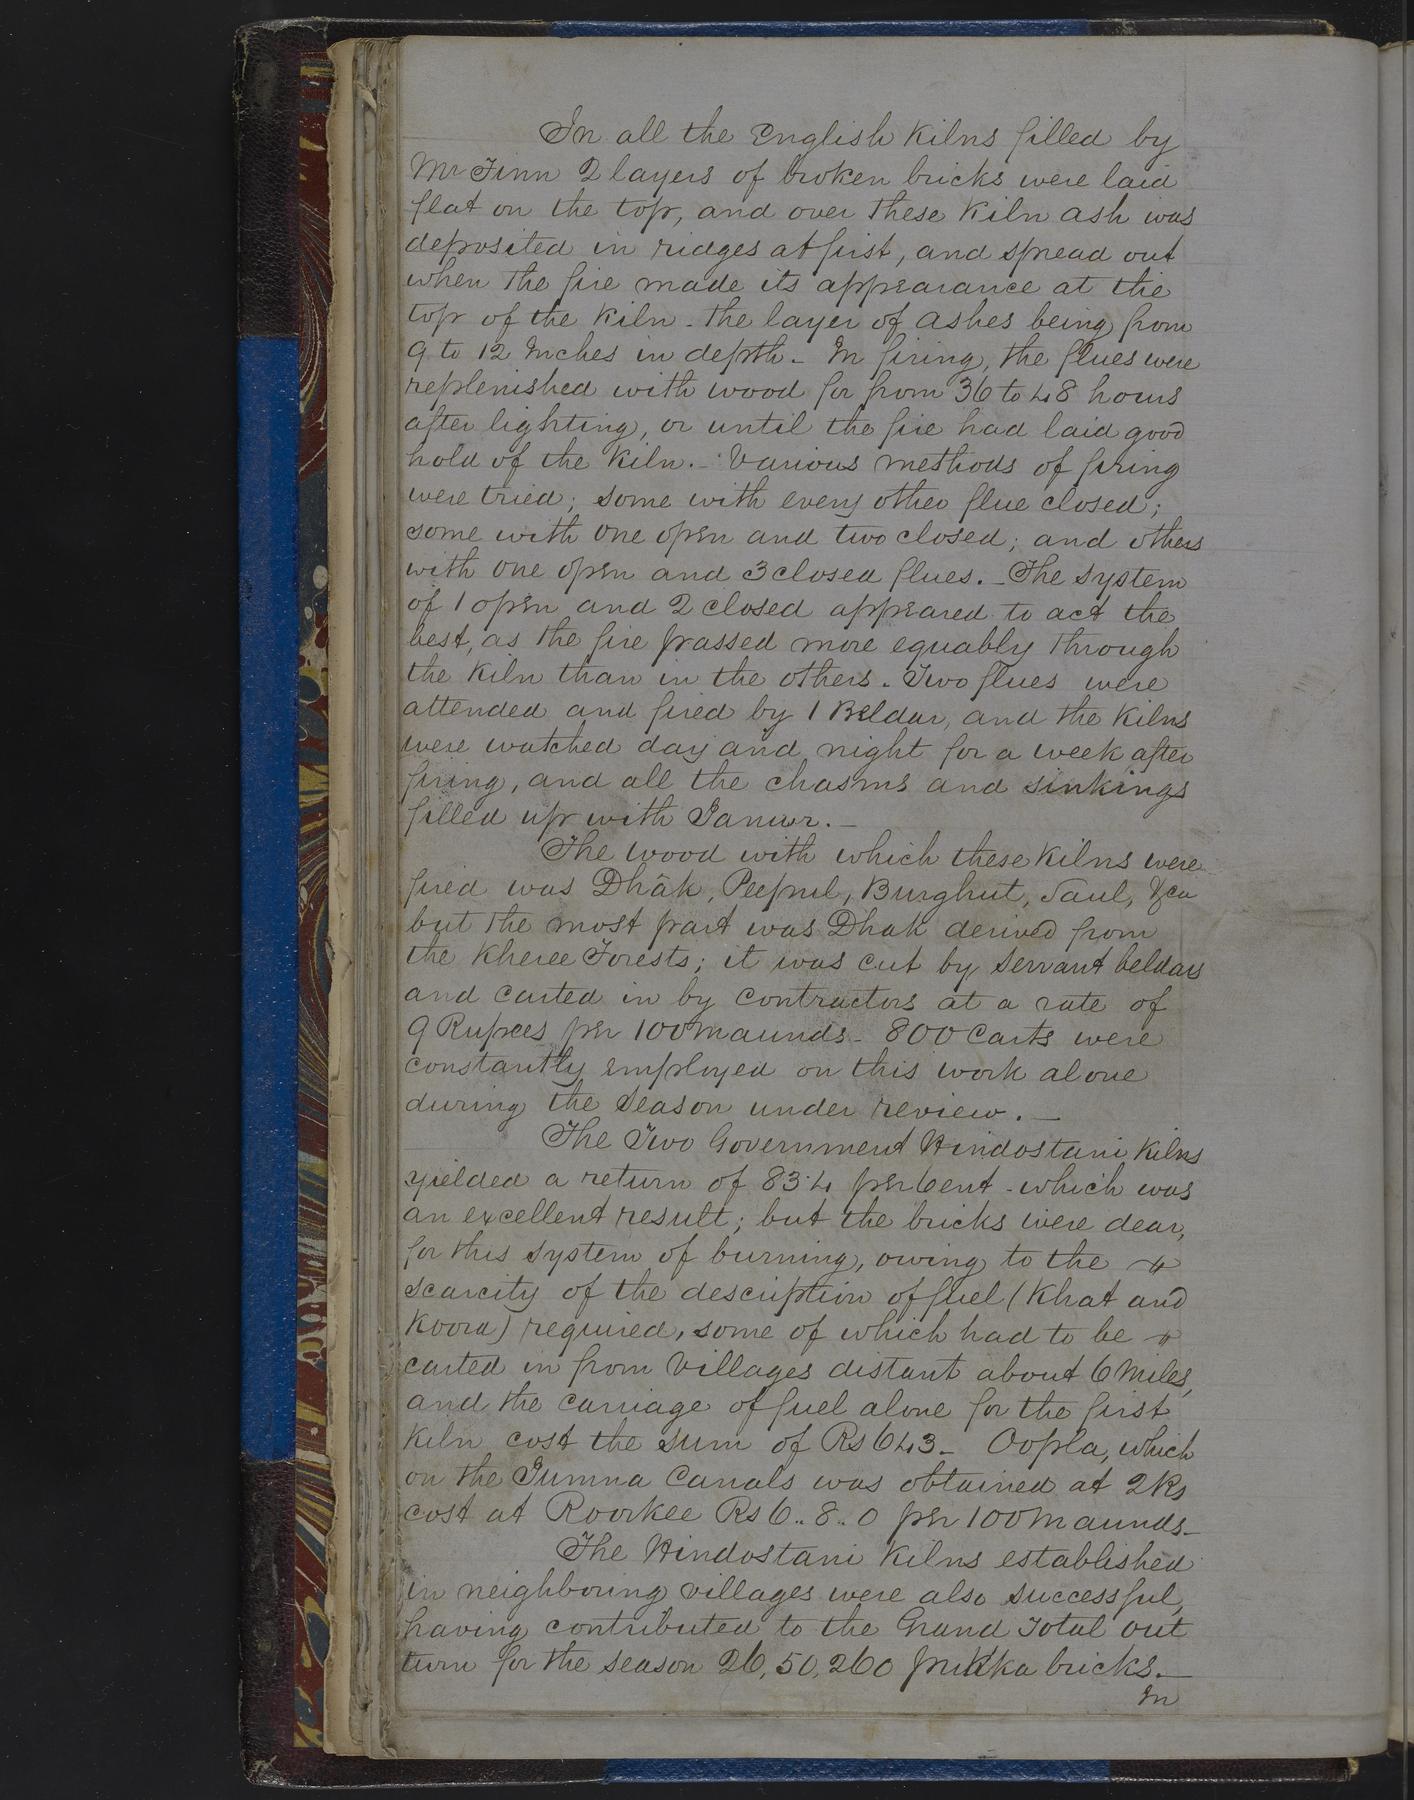 In all the English Kilns filled by
Mr Finn 2 layers of broken bricks were laid
flat on the top, and over these Kiln ash was
deposited in ridges at first, and spread out
when the fire made its appearance at the
top of the Kiln - the layer of ashes being from
9 to 12 Inches in depth - In firing, the flues were
replenished with wood for from 36 to 48 hours
after lighting, or until the fire had laid good
hold of the Kiln. - Various methods of firing
were tried; some with every other flue closed;
some with one open and two closed; and others
with one open and 3 closed flues. - The system
of 1 open and 2 closed appeared to act the
best, as the fire passed more equably through
the Kiln than in the others. Two flues were
attended and fired by 1 Beldar, and the Kilns
were watched day and night for a week after
firing, and all the chasms and sinkings
filled up with Janwr. -
The wood with which these Kilns were
fired was Dhâk, Peepul, Burghut, Saul, &ca
but the most part was Dhak derived from
the Kheree Forests; it was cut by Servant beldars
and carted in by Contractors at a rate of
9 Rupees per 100 maunds - 800 Carts were
constantly employed on this work alone
during the Season under review. -
The Two Government Hindostani Kilns
yielded a return of 83.4 per Cent - which was
an excellent result; but the bricks were dear,
for this system of burning, owing to the "
scarcity of the description of fuel (Khat and
Koora) required, some of which had to be "
carted in from Villages distant about 6 Miles,
and the Carriage of fuel alone for the first
Kiln cost the sum of Rs 643 - Oopla, which
on the Jumna Canals was obtained at 2 Rs
cost at Roorkee Rs 6..8..0 per 100 Maunds -
The Hindostani Kilns established
in neighboring villages were also successful,
having contributed to the Grand Total out
turn for the season 26,50,260 pukka bricks. -
In